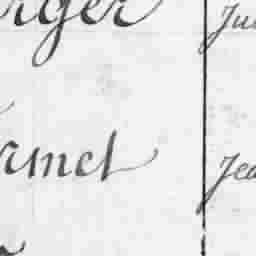 rger Ju
rmet Jea